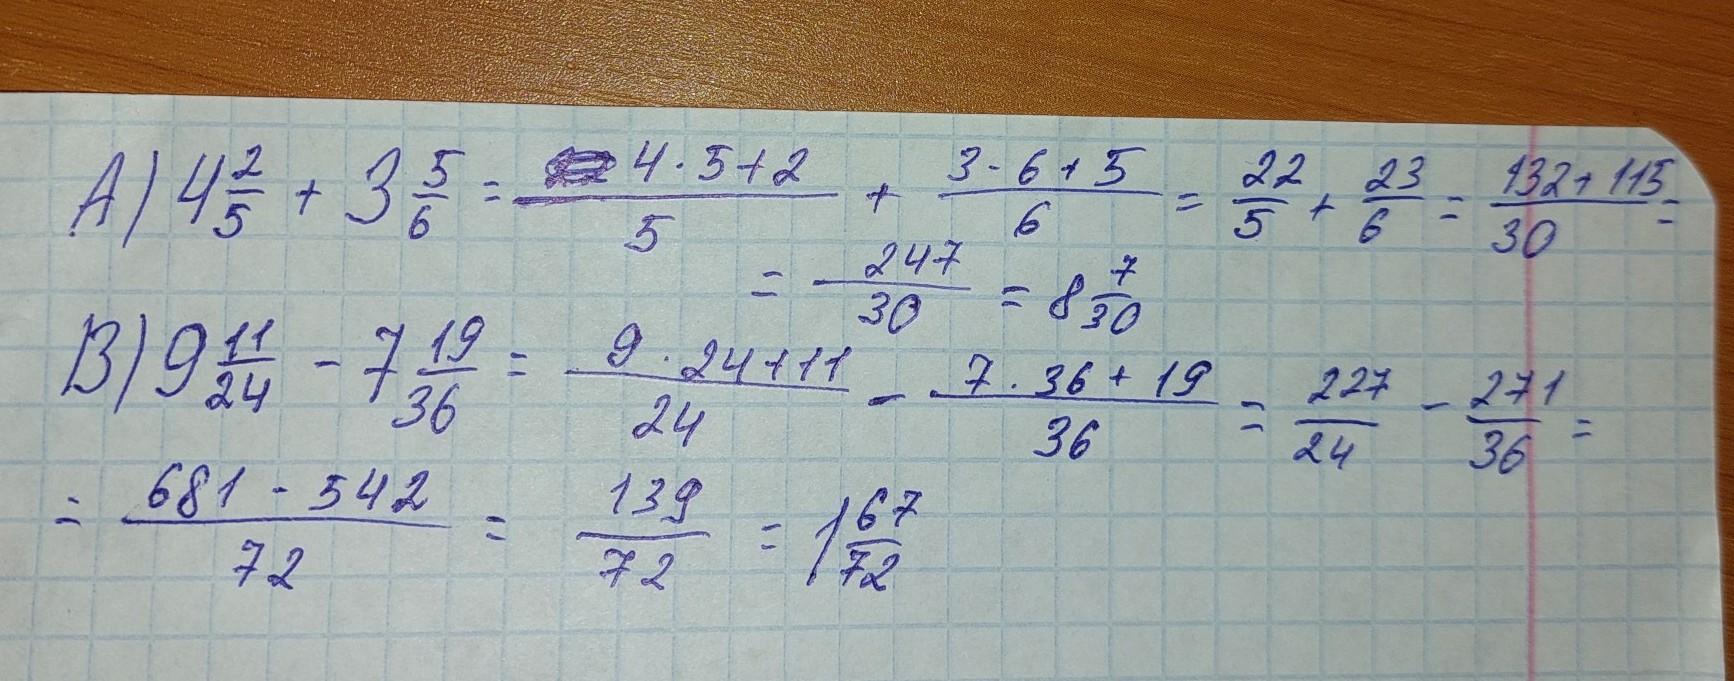 А) 4 2/5 + 3 5/6 = (4 · 5 + 2)/5 + (3 · 6 + 5)/6 = 22/5 + 23/6 = (132 + 115)/30 =
= 247/30 = 8 7/30
В) 9 11/24 - 7 19/36 = (9 · 24 + 11)/24 - (7 · 36 + 19)/36 = 227/24 - 271/36 =
= (681 - 542)/72 = 139/72 = 1 67/72